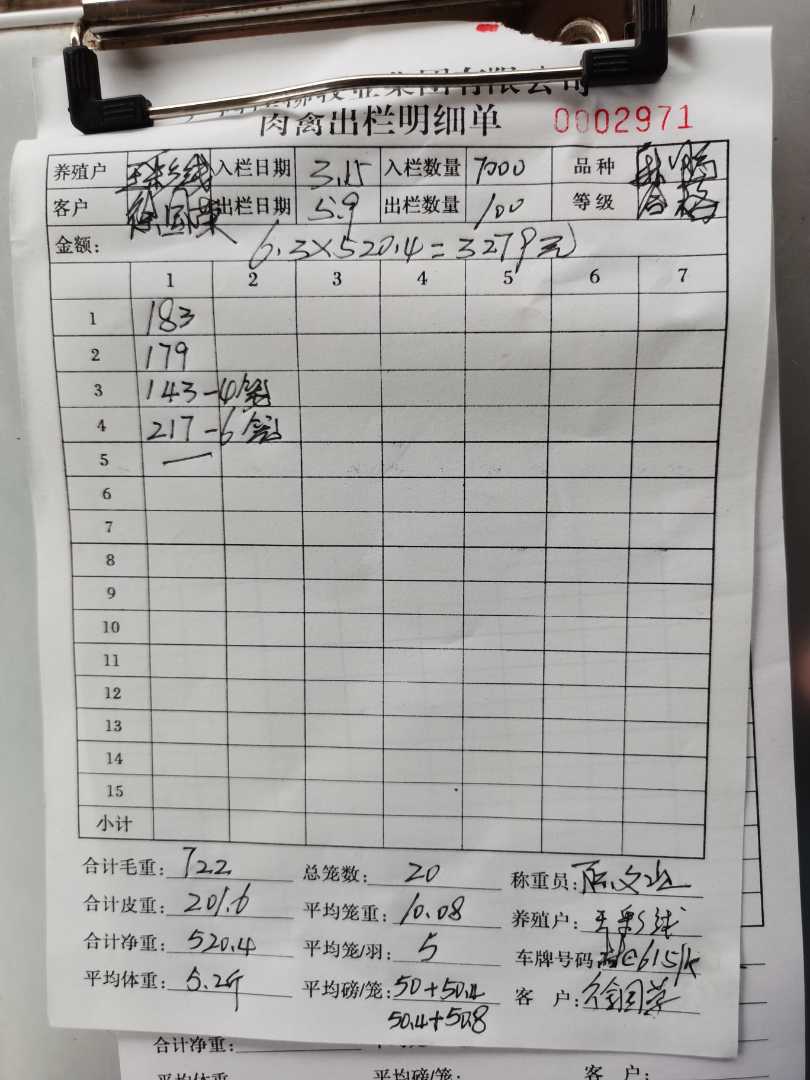 集团有限公司
肉禽出栏明细单 0002971
养殖户 王彩线 入栏日期 3.15 入栏数量 7000 品种
客户 出栏日期 5.9 出栏数量 100 等级 合格
金额: 6.3×520.4=3279元
1 2 3 4 5 6 7
1 183
2 179
3 143-4笼
4 217-6笼
5 —
6
7
8
9
10
11
12
13
14
15
小计
合计毛重: 722 总笼数: 20 称重员:
合计皮重: 201.6 平均笼重: 10.08 养殖户: 王彩线
合计净重: 520.4 平均笼/羽: 5 车牌号码
平均体重: 5.2斤 平均磅/笼: 50+50.4 客 户:
50.4+50.8
合计净重:
平均体重 平均磅/笼: 客 户: